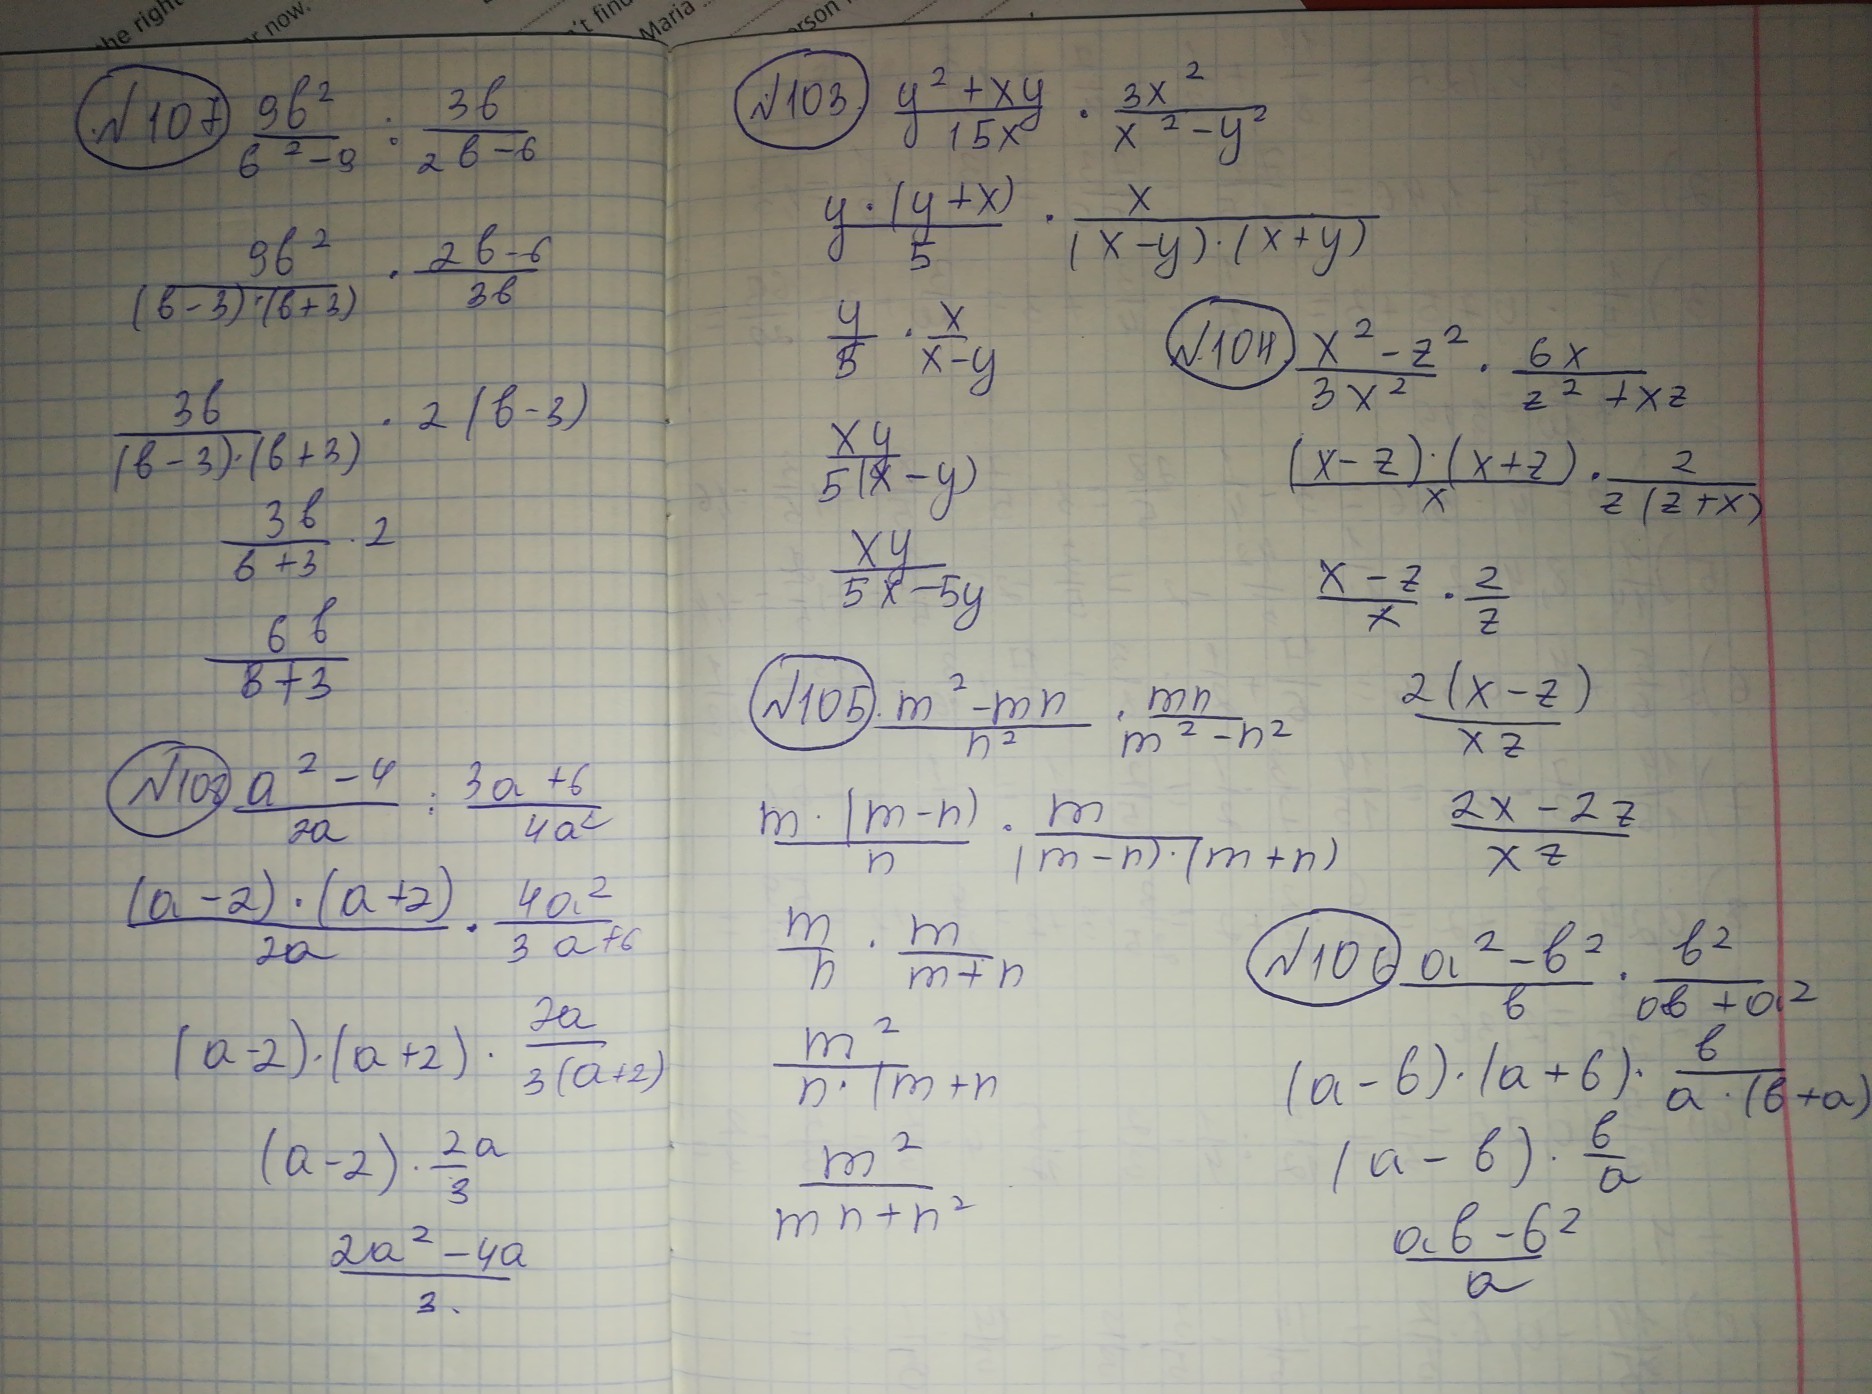 he right
r now.
't find
Maria ..
erson
№107 9b²/(b²-9) : 3b/(2b-6)
9b²/((b-3)·(b+3)) · (2b-6)/3b
3b/((b-3)·(b+3)) · 2(b-3)
3b/(b+3) · 2
6b/(b+3)
№108 (a²-4)/2a : (3a+6)/4a²
((a-2)·(a+2))/2a · 4a²/(3a+6)
(a-2)·(a+2) · 2a/(3(a+2))
(a-2) · 2a/3
(2a²-4a)/3.
№103 (y²+xy)/15x · 3x²/(x²-y²)
(y·(y+x))/5 · x/((x-y)·(x+y))
y/5 · x/(x-y)
xy/(5(x-y))
xy/(5x-5y)
№104 (x²-z²)/3x² · 6x/(z²+xz)
((x-z)·(x+z))/x · 2/(z(z+x))
(x-z)/x · 2/z
2(x-z)/xz
(2x-2z)/xz
№105. (m²-mn)/n² · mn/(m²-n²)
(m·(m-n))/n · m/((m-n)·(m+n))
m/n · m/(m+n)
m²/(n·(m+n)
m²/(mn+n²)
№106 (a²-b²)/b · b²/(ab+a²)
(a-b)·(a+b)· b/(a·(b+a))
(a-b) · b/a
(ab-b²)/a